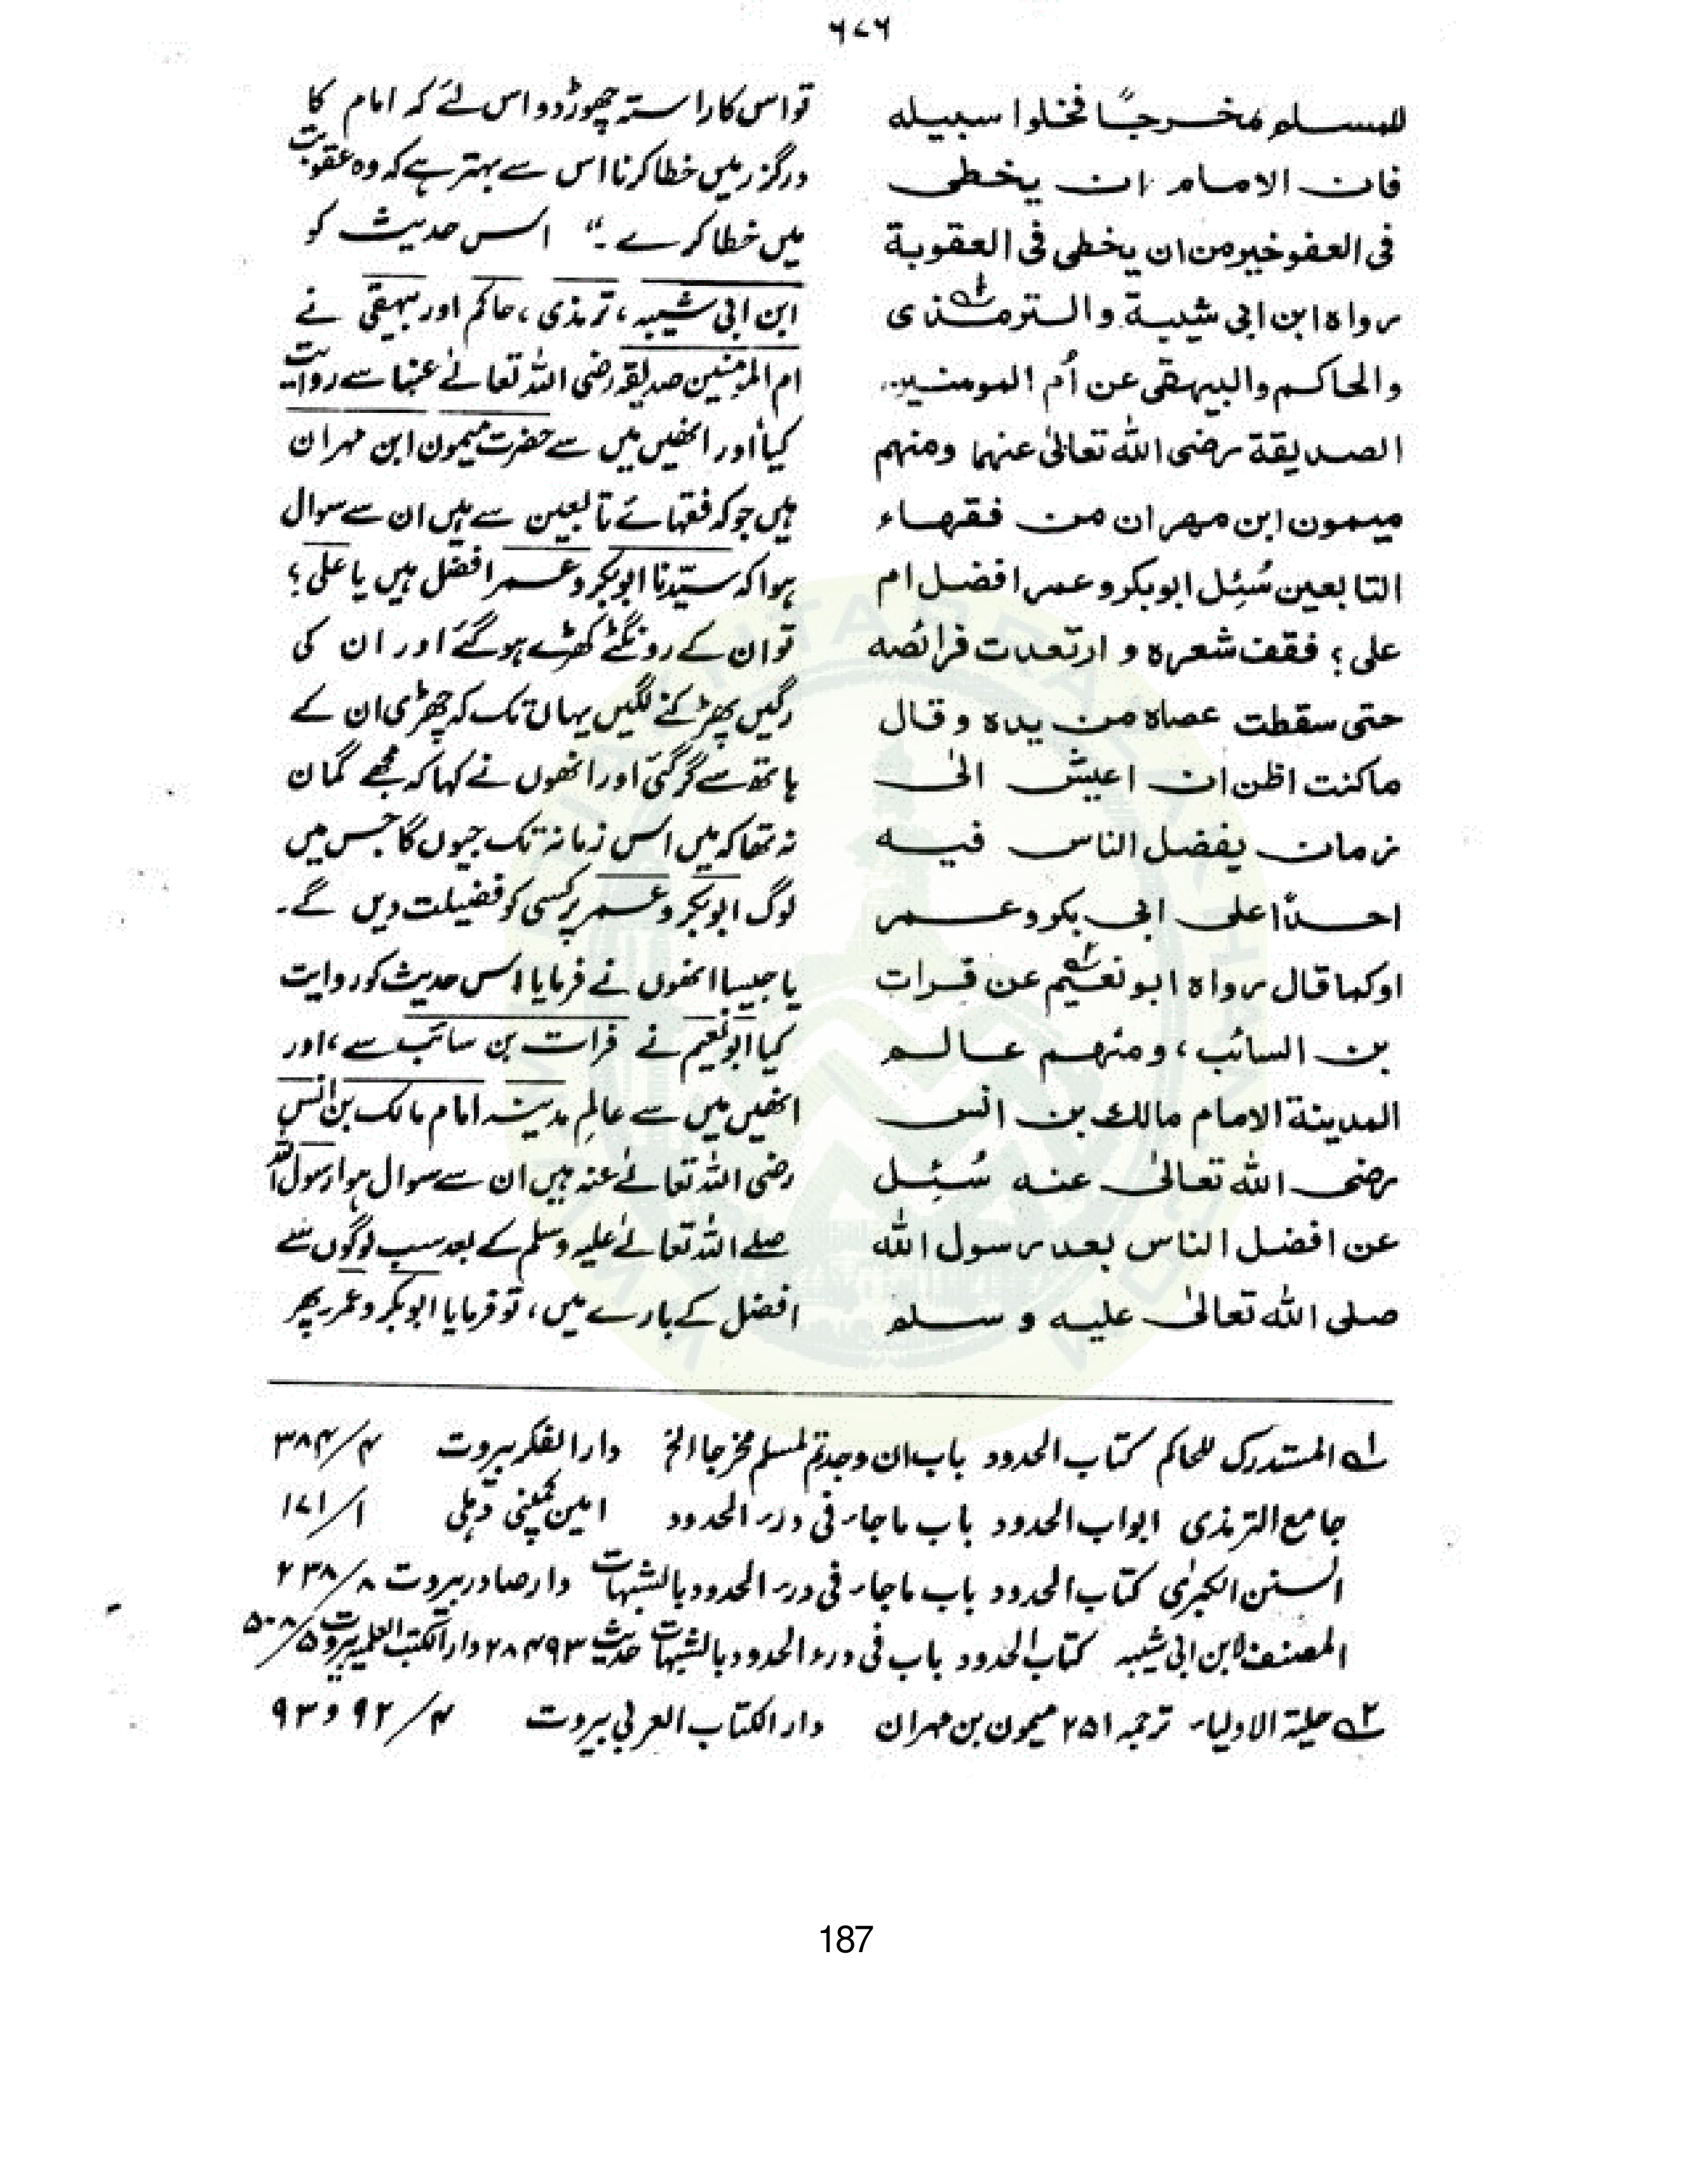 ٦٧٦
للمسلم مخرجًا فخلوا سبيله
فان الامام ان يخطى
فى العفو خير من ان يخطى فى العقوبة
رواه ابن ابى شيبة والترمذى
والحاكم والبيهقى عن اُم المومنين
الصديقة رضى الله تعالىٰ عنها ومنهم
ميمون ابن مهران من فقهاء
التابعين سُئِل ابوبكر وعمر افضل ام
على ؟ فقف شعره و ارتعدت فرائصه
حتى سقطت عصاه من يده وقال
ماكنت اظن ان اعيش الىٰ
زمان يفضل الناس فيه
احدًا على ابى بكر وعمر
اوكما قال رواه ابونعيم عن فرات
بن السائب، ومنهم عالم
المدينة الامام مالك بن انس
رضى الله تعالىٰ عنه سُئِل
عن افضل الناس بعد رسول الله
صلى الله تعالىٰ عليه و سلم
تو اس کا راستہ چھوڑ دو اس لئے کہ امام کا
درگزر میں خطا کرنا اس سے بہتر ہے کہ وہ عقوبت
میں خطا کرے ۔“ اس حدیث کو
ابن ابی شیبہ ، ترمذی ، حاکم اور بیہقی نے
ام المومنین صدیقہ رضی اللہ تعالےٰ عنہا سے روایت
کیا، اور انھیں میں سے حضرت میمون ابن مہران
ہیں جو کہ فقہائے تابعین سے ہیں ان سے سوال
ہوا کہ سیّدنا ابوبکر و عمر افضل ہیں یا علی ؟
تو ان کے رونگٹے کھڑے ہو گئے اور ان کی
رگیں پھڑکنے لگیں یہاں تک کہ چھڑی ان کے
ہاتھ سے گر گئی اور انھوں نے کہا کہ مجھے گمان
نہ تھا کہ میں اس زمانہ تک جیوں گا جس میں
لوگ ابوبکر و عمر پر کسی کو فضیلت دیں گے ۔
یا جیسا انھوں نے فرمایا اس حدیث کو روایت
کیا ابونعیم نے فرات بن سائب سے ، اور
انھیں میں سے عالمِ مدینہ امام مالک بن انس
رضی اللہ تعالےٰ عنہ ہیں ان سے سوال ہوا رسول اللہ
صلے اللہ تعالےٰ علیہ وسلم کے بعد سب لوگوں سے
افضل کے بارے میں ، تو فرمایا ابوبکر و عمر، پھر
١ المستدرک للحاکم کتاب الحدود باب ان وجدتم لمسلم مخرجا الخ دار الفکر بیروت ۴/ ۳۸۴
جامع الترمذی ابواب الحدود باب ماجاء فی درء الحدود امین کمپنی دہلی ۱/ ۱۷۱
السنن الکبرٰی کتاب الحدود باب ماجاء فی درء الحدود بالشبہات دار صادر بیروت ۸/ ۲۳۸
المصنف لابن ابی شیبہ کتاب الحدود باب فی درء الحدود بالشبہات حدیث ۲۸۴۹۳ دار الکتب العلمیہ بیروت ۵/ ۵۰۸
٢ حلیۃ الاولیاء ترجمہ ۲۵۱ میمون بن مہران دار الکتاب العربی بیروت ۴/ ۹۲ و ۹۳
187